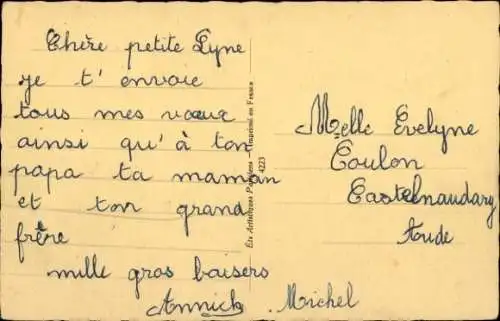 Chère petite Lyne
je t'envoie
tous mes vœux
ainsi qu'à ton
papa ta maman
et ton grand
frère
mille gros baisers
Annick Michel
Edts Artistiques Parisiens - Imprimé en France
4223
Melle Evelyne
Coulon
Castelnaudary
Aude